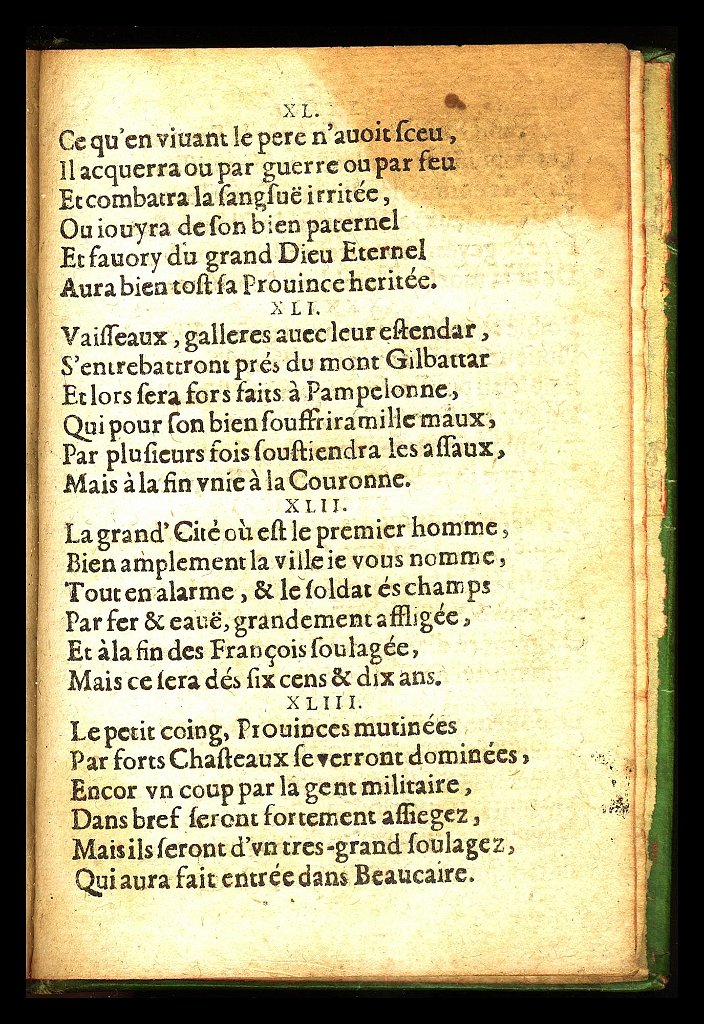 XL.
Ce qu'en viuant le pere n'auoit ſceu,
Il acquerra ou par guerre ou par feu
Et combatra la ſangſuë irritée,
Ou iouyra de ſon bien paternel
Et fauory du grand Dieu Eternel
Aura bien toſt ſa Prouince heritée.
XLI.
Vaiſſeaux, galleres auec leur eſtendar,
S'entrebattront prés du mont Gilbattar
Et lors ſera fors faits à Pampelonne,
Qui pour ſon bien ſouffrira mille maux,
Par pluſieurs fois ſouſtiendra les aſſaux,
Mais à la fin vnie à la Couronne.
XLII.
La grand' Cité où eſt le premier homme,
Bien amplement la ville ie vous nomme,
Tout en alarme, & le ſoldat és champs
Par fer & eauë, grandement affligée,
Et à la fin des François ſoulagée,
Mais ce ſera dés ſix cens & dix ans.
XLIII.
Le petit coing, Prouinces mutinées
Par forts Chaſteaux ſe verront dominées,
Encor vn coup par la gent militaire,
Dans bref ſeront fortement aſſiegez,
Mais ils ſeront d'vn tres-grand ſoulagez,
Qui aura fait entrée dans Beaucaire.